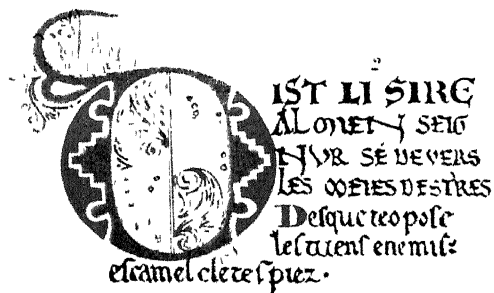 DIST LI SIRE
A LO MIEN SEIG
NUR SÉ DEVERS
LES MEIES DESTRES
Desque teo pose
les tuens enemis:
escamel de tes piez.